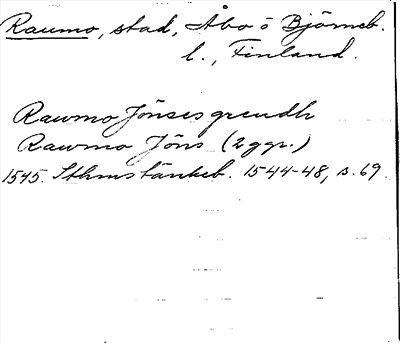 Raumo, stad, Åbo o Björneb.
l., Finland.
Rawmo Jönses grendh
Rawmo Jöns (2 ggr.)
1545. Sthms tänkeb. 1544-48, s. 69.